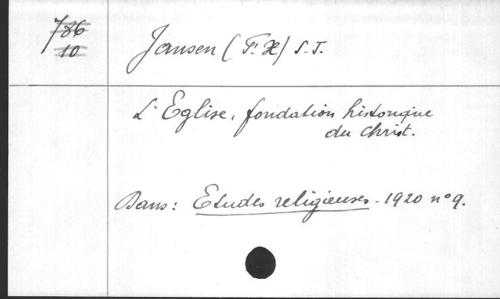 786
10
Jansen (F. X) S.J.
L'Eglise, fondation historique
du Christ.
Dans: Etudes religieuses - 1920 n° 9.